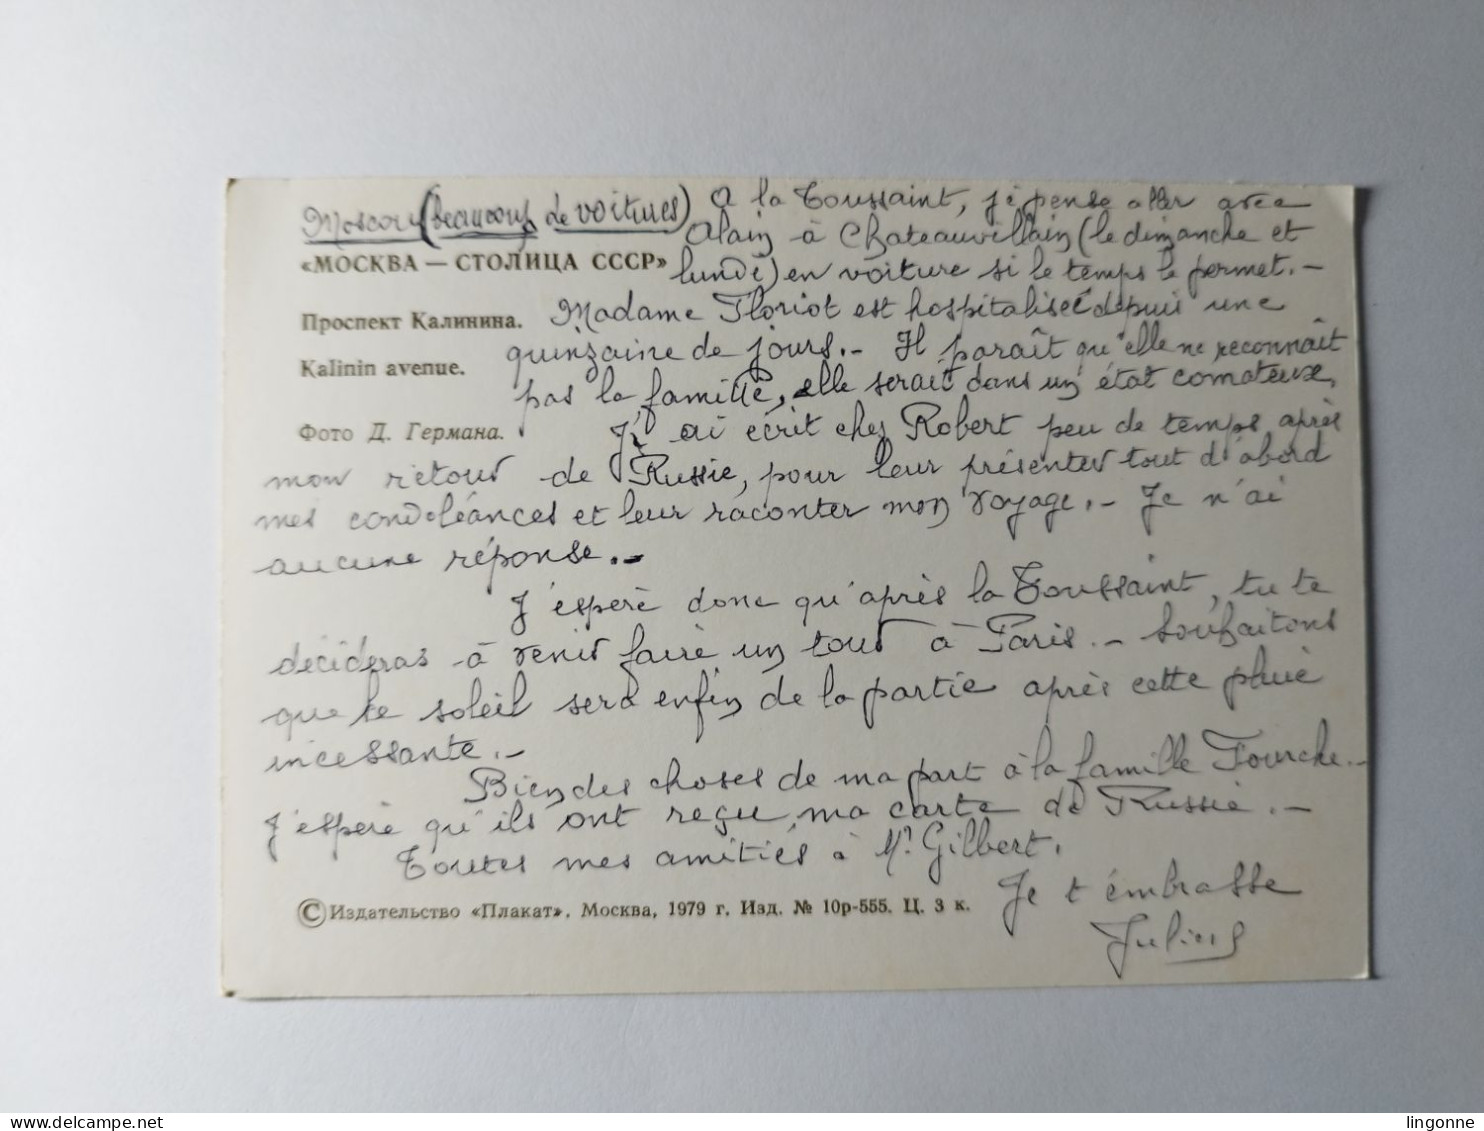 Moscou (beaucoup de voitures) A la Toussaint, je pense aller avec
Alain à Chateauvillain (le dimanche et
«МОСКВА — СТОЛИЦА СССР» lundi) en voiture si le temps le permet. –
Проспект Калинина. Madame Floriot est hospitalisée depuis une
quinzaine de jours. – Il paraît qu'elle ne reconnaît
Kalinin avenue.
pas la famille, elle serait dans un état comateux.
Фото Д. Германа. J'ai écrit chez Robert peu de temps après
mon retour de Russie, pour leur présenter tout d'abord
mes condoléances et leur raconter mon voyage. – Je n'ai
aucune réponse. –
J'espère donc qu'après la Toussaint, tu te
décideras à venir faire un tour à Paris. – Souhaitons
que le soleil sera enfin de la partie après cette pluie
incessante. –
Bien des choses de ma part à la famille Fourche. –
J'espère qu'ils ont reçu ma carte de Russie. –
Toutes mes amitiés à Mr Gilbert.
Je t'embrasse
© Издательство «Плакат». Москва, 1979 г. Изд. № 10р-555. Ц. 3 к.
delcampe.net
lingonne